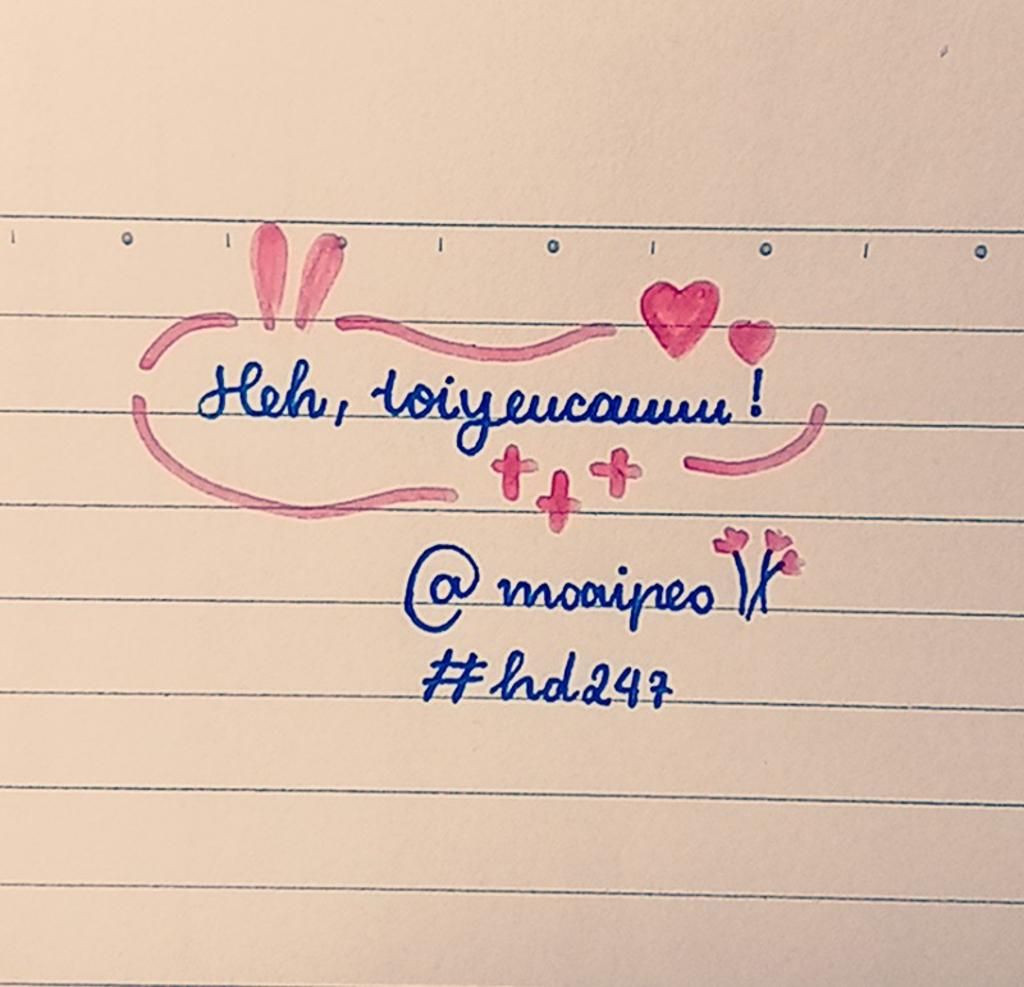 Heh, toiyeucauuuu!
@moaipeo
#hd247